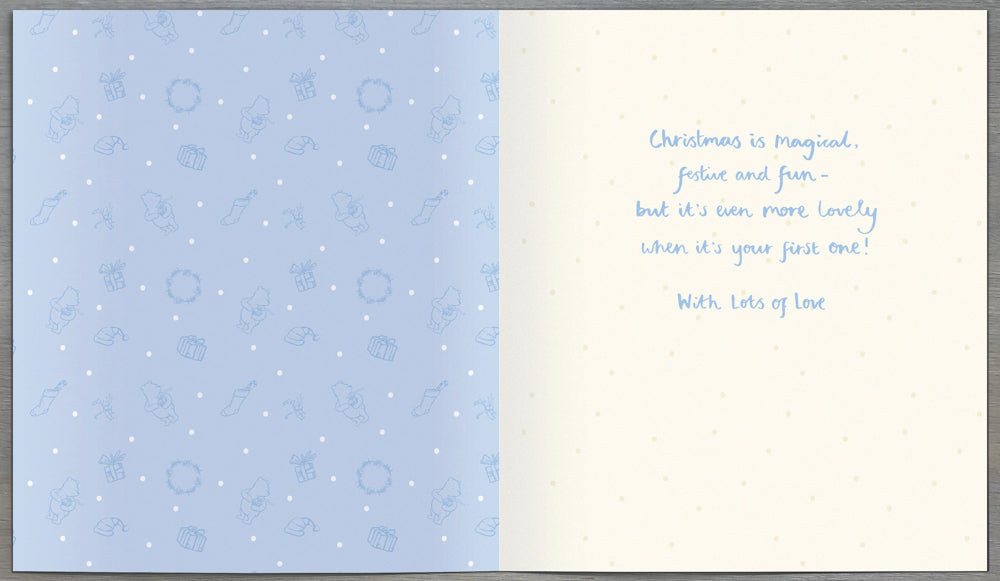 Christmas is magical,
festive and fun -
but it's even more lovely
when it's your first one!
With Lots of Love